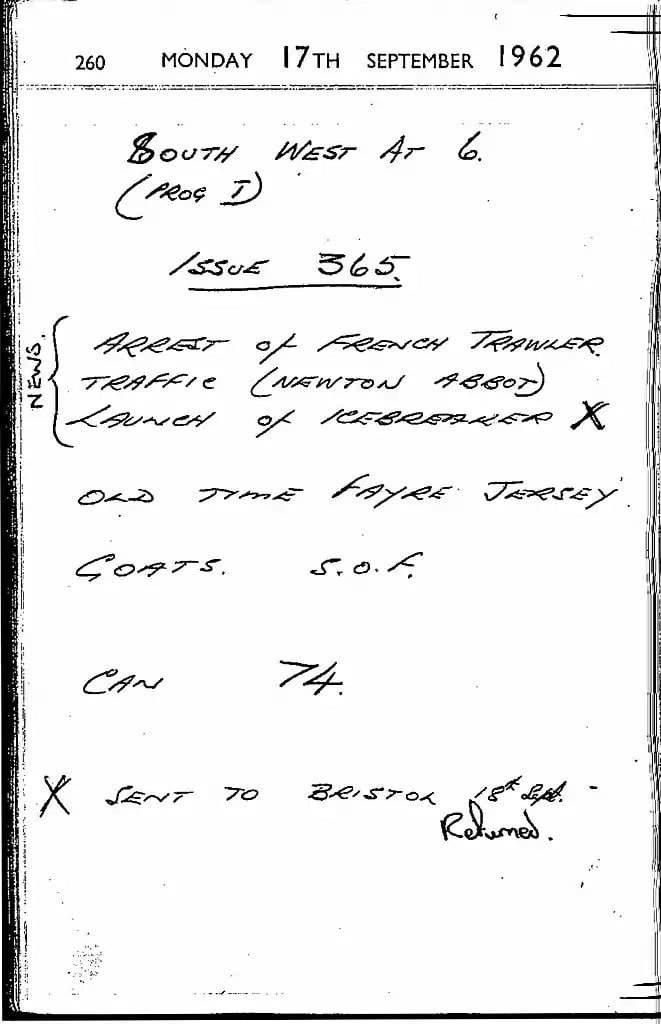 260 MONDAY 17TH SEPTEMBER 1962
SOUTH WEST AT 6.
(PROG I)
ISSUE 365.
NEWS.
ARREST of FRENCH TRAWLER.
TRAFFIC (NEWTON ABBOT)
LAUNCH of ICEBREAKER X
OLD TIME FAYRE JERSEY.
GOATS. S.O.F.
CAN 74.
X SENT TO BRISTOL 18th Sept. -
Returned.